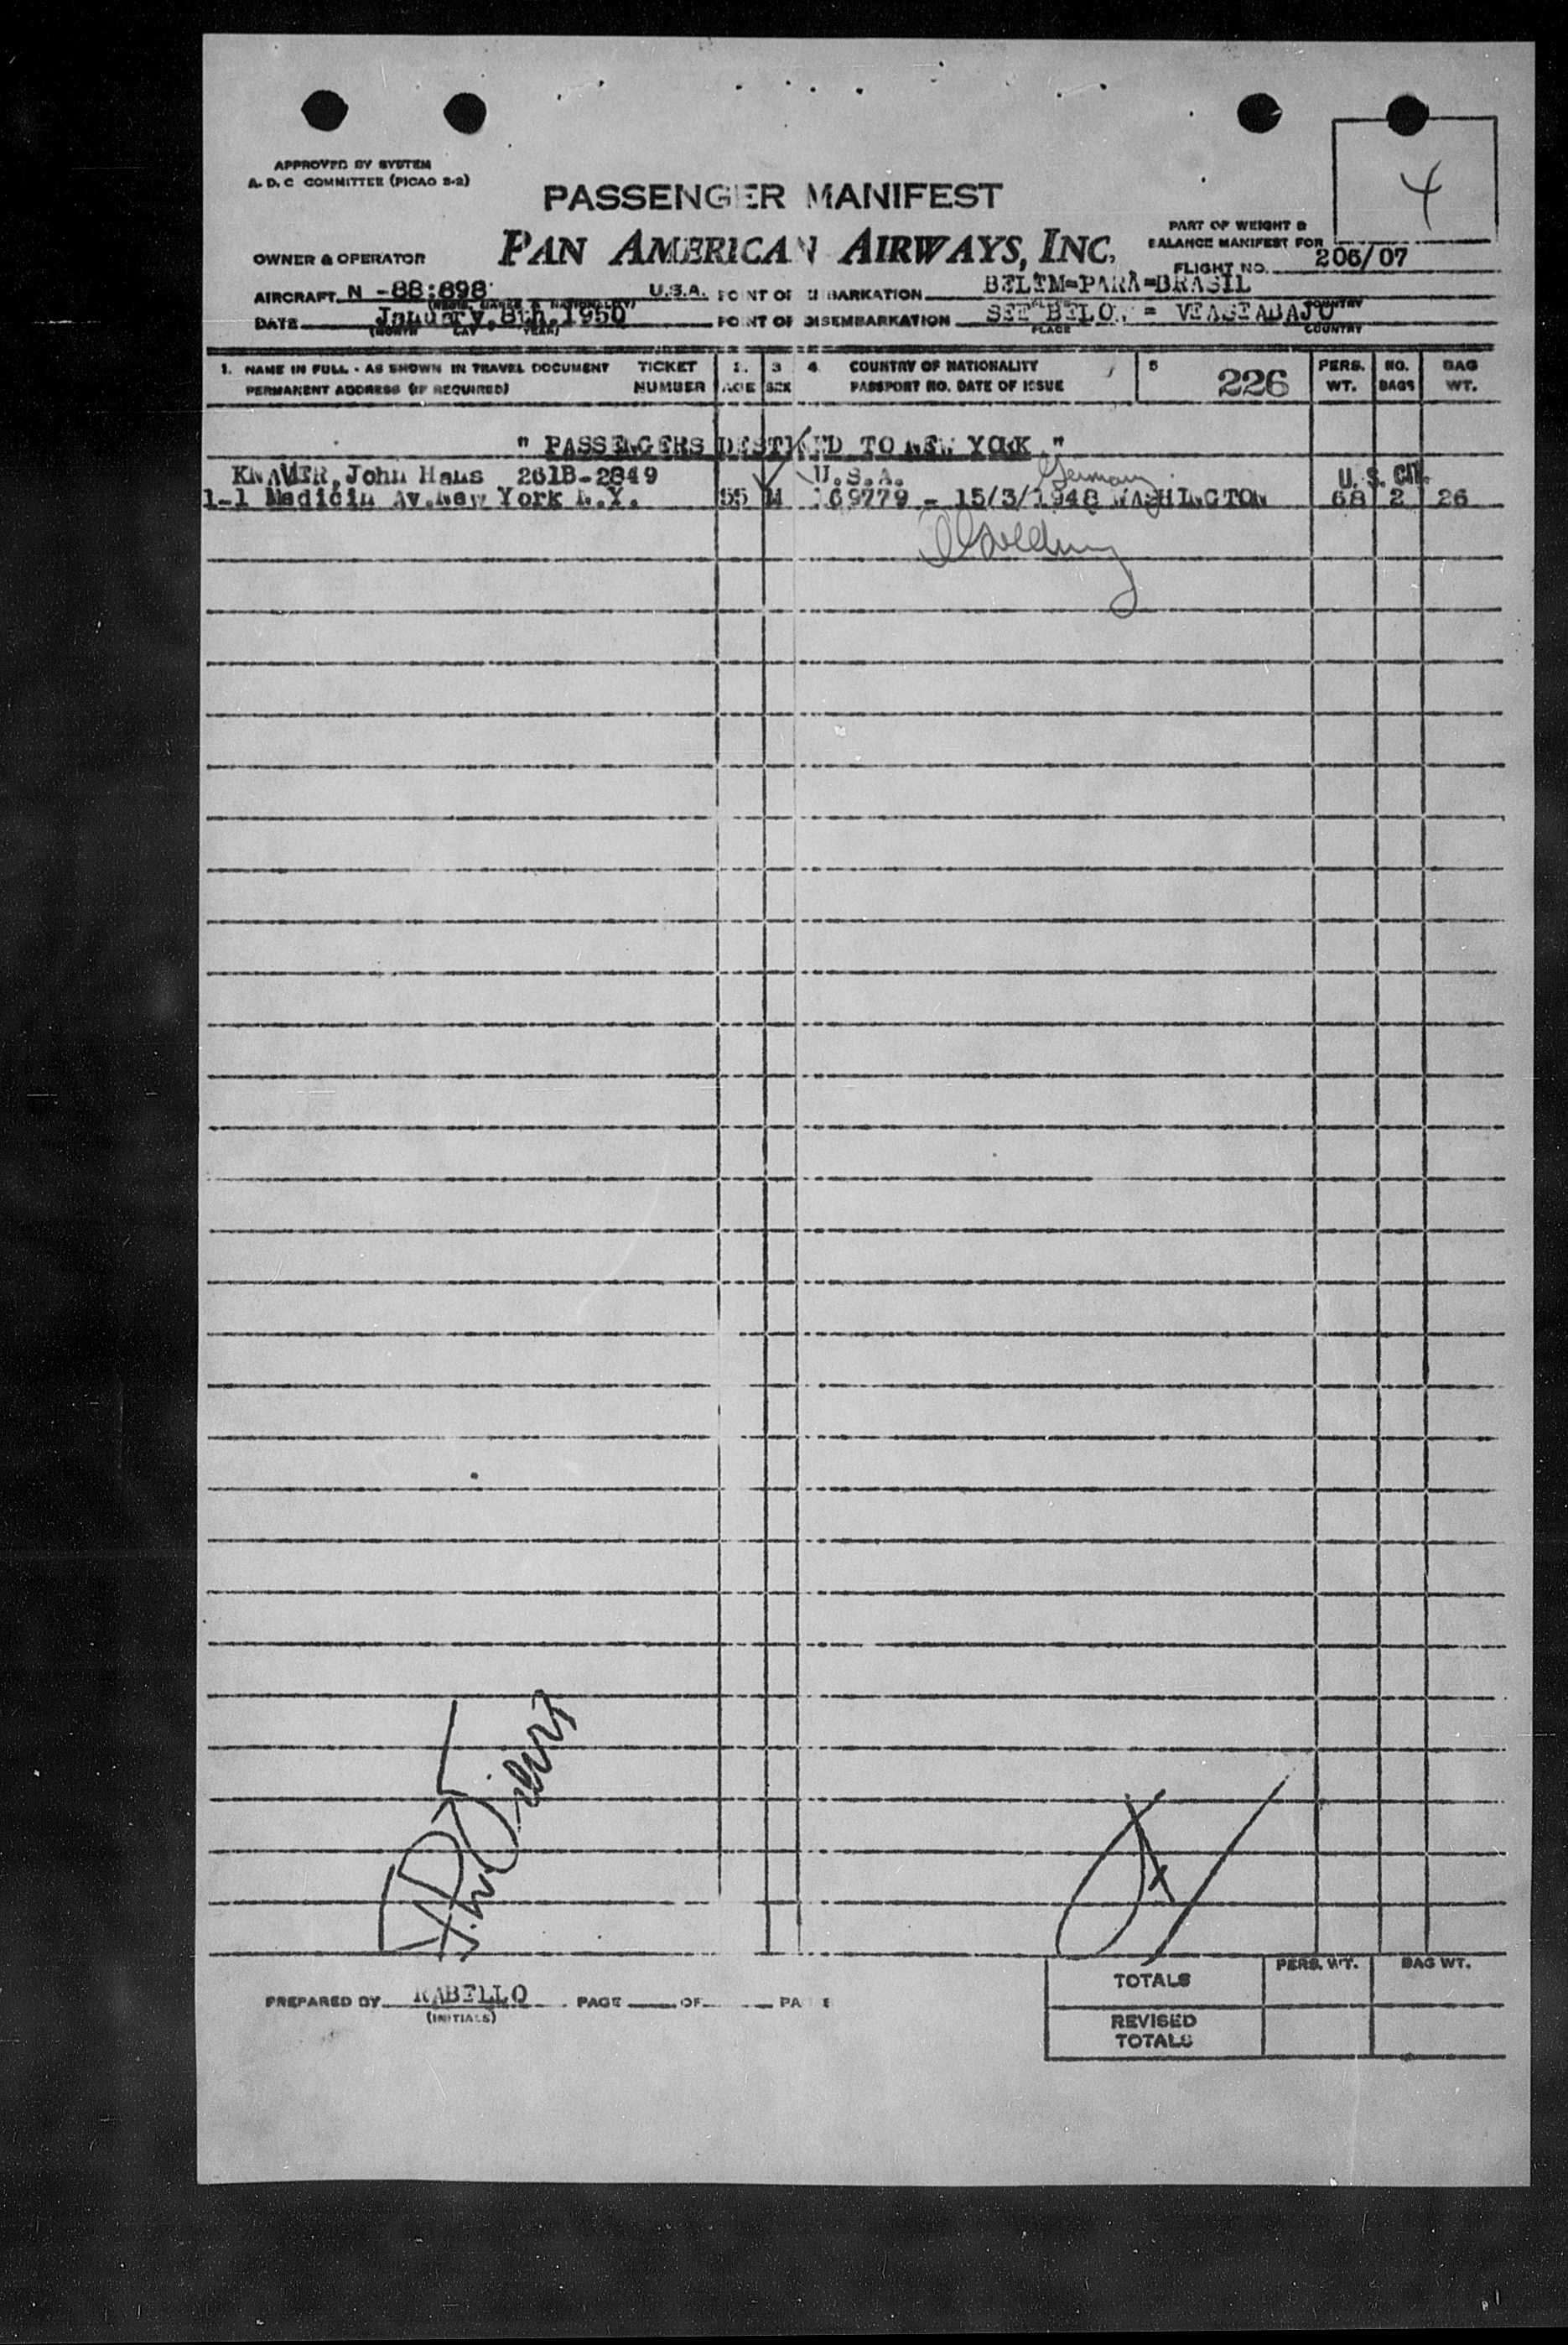 APPROVED BY SYSTEM
A. D. C COMMITTEE (PICAO S-2)
4
PASSENGER MANIFEST
PART OF WEIGHT &
BALANCE MANIFEST FOR
OWNER & OPERATOR PAN AMERICAN AIRWAYS, INC.
FLIGHT NO. 206/07
AIRCRAFT N -88:898 U.S.A. POINT OF EMBARKATION BELEM=PARA=BRASIL
DATE January, 8th, 1950 POINT OF DISEMBARKATION SEE BELOW = VEASEABAJO
(MONTH DAY YEAR) PLACE COUNTRY
1. NAME IN FULL - AS SHOWN IN TRAVEL DOCUMENT TICKET 3 4 COUNTRY OF NATIONALITY 5 226 PERS. NO. BAG
PERMANENT ADDRESS (IF REQUIRED) NUMBER AGE SEX PASSPORT NO. DATE OF ISSUE WT. BAGS WT.
" PASSENGERS DESTINED TO NEW YORK "
John Hans 261B-2849 U.S.A. Germany U. S. Cit.
1-1 Av. New York N.Y. 55 M 169779 - 15/3/1948 WASHINGTON 68 2 26
PREPARED BY RABELLO PAGE OF PAGE
(INITIALS)
PERS. WT. BAG WT.
TOTALS
REVISED
TOTALS